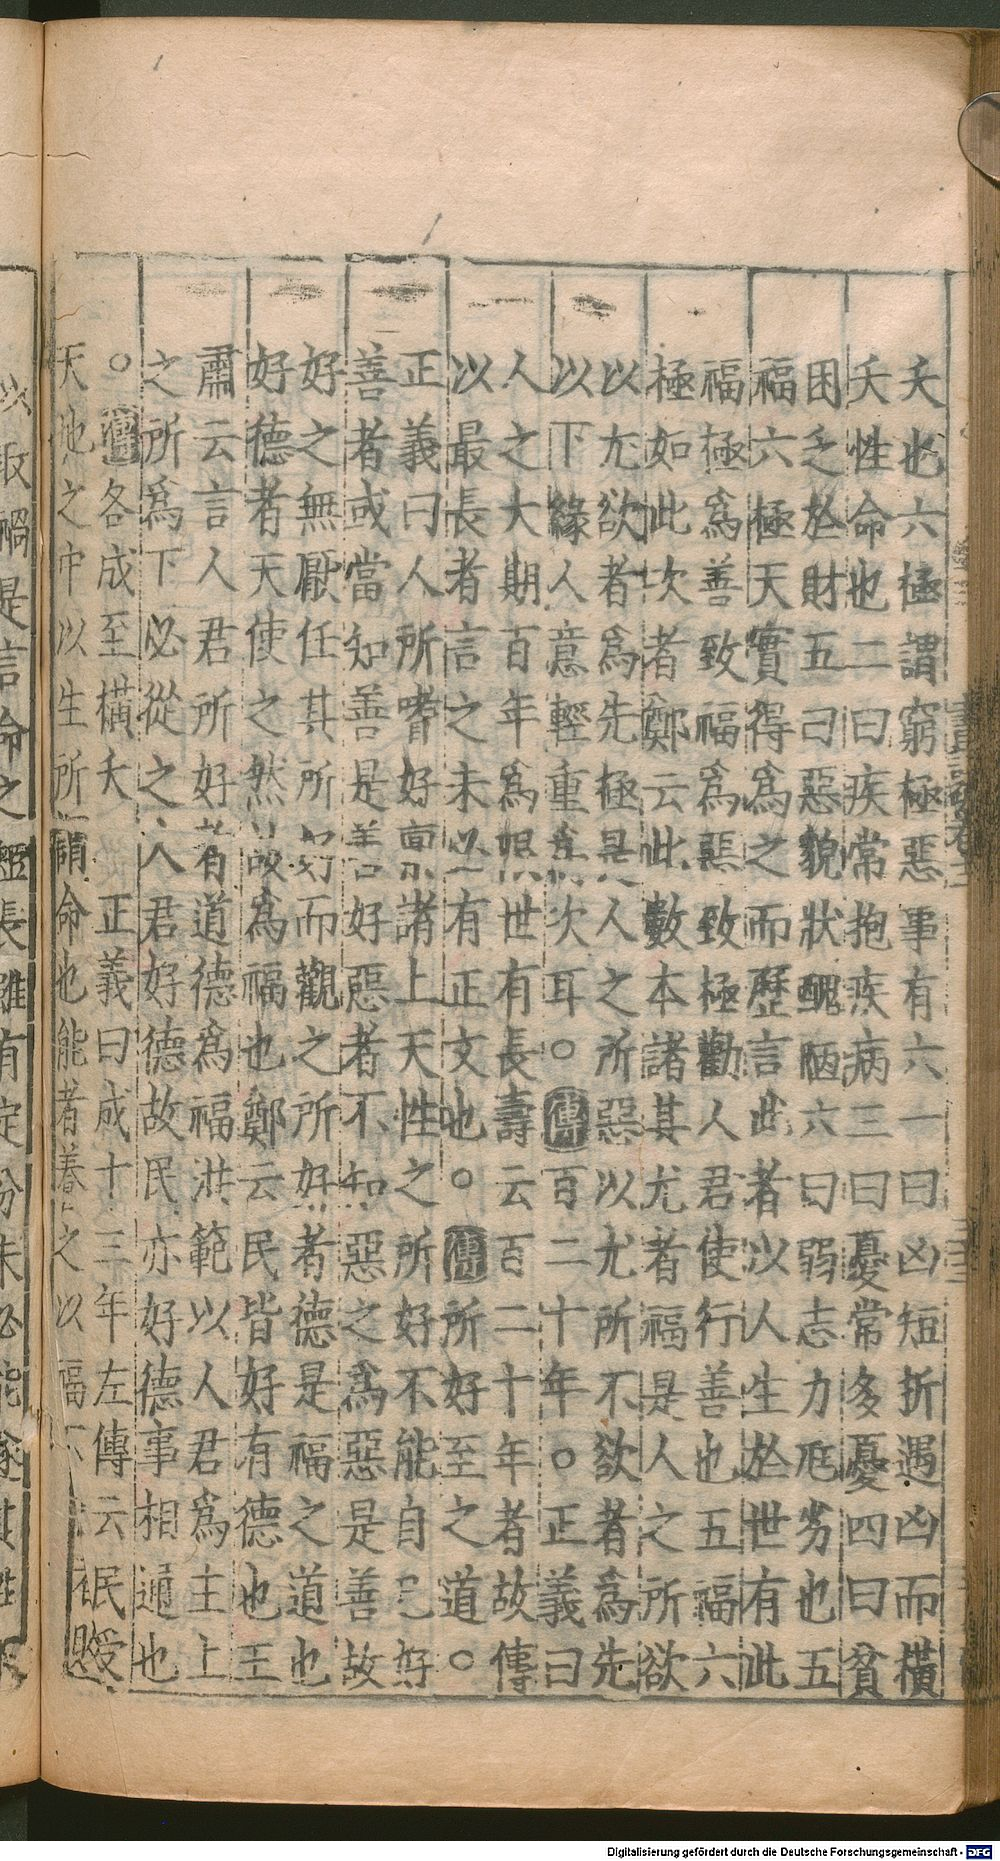 夭也六極謂窮極惡事有六一曰凶短折遇凶而橫
夭性命也二曰疾常抱疾病三曰憂常多憂四曰貧
困乏於財五曰惡貌狀醜陋六曰弱志力尫劣也五
福六極天實得爲之而歷言此者以人生於世有此
福極爲善致福爲惡致極勸人君使行善也五福六
極如此次者鄭云此數本諸其尤者福是人之所欲
以尤欲者爲先極是人之所惡以尤所不欲者爲先
以下緣人意輕重爲次耳○傳百二十年○正義曰
人之大期百年爲限世有長壽云百二十年者故傳
以最長者言之未必有正文也○傳所好至之道○
正義曰人所嗜好稟諸上天性之所好不能自已好
善者或當知善是善好惡者不知惡之爲惡是善故
好之無厭任其所好而觀之所好者德是福之道也
好德者天使之然故爲福也鄭云民皆好有德也王
肅云言人君所好者道德爲福洪範以人君爲主上
之所爲下必從之人君好德故民亦好德事相通也
○傳各成至橫夭 正義曰成十三年左傳云民受
天地之中以生所謂命也能者養之以福不
以取禍是言命之短長雖有定分未必能遂其性
Digitalisierung gefördert durch die Deutsche Forschungsgemeinschaft - DFG